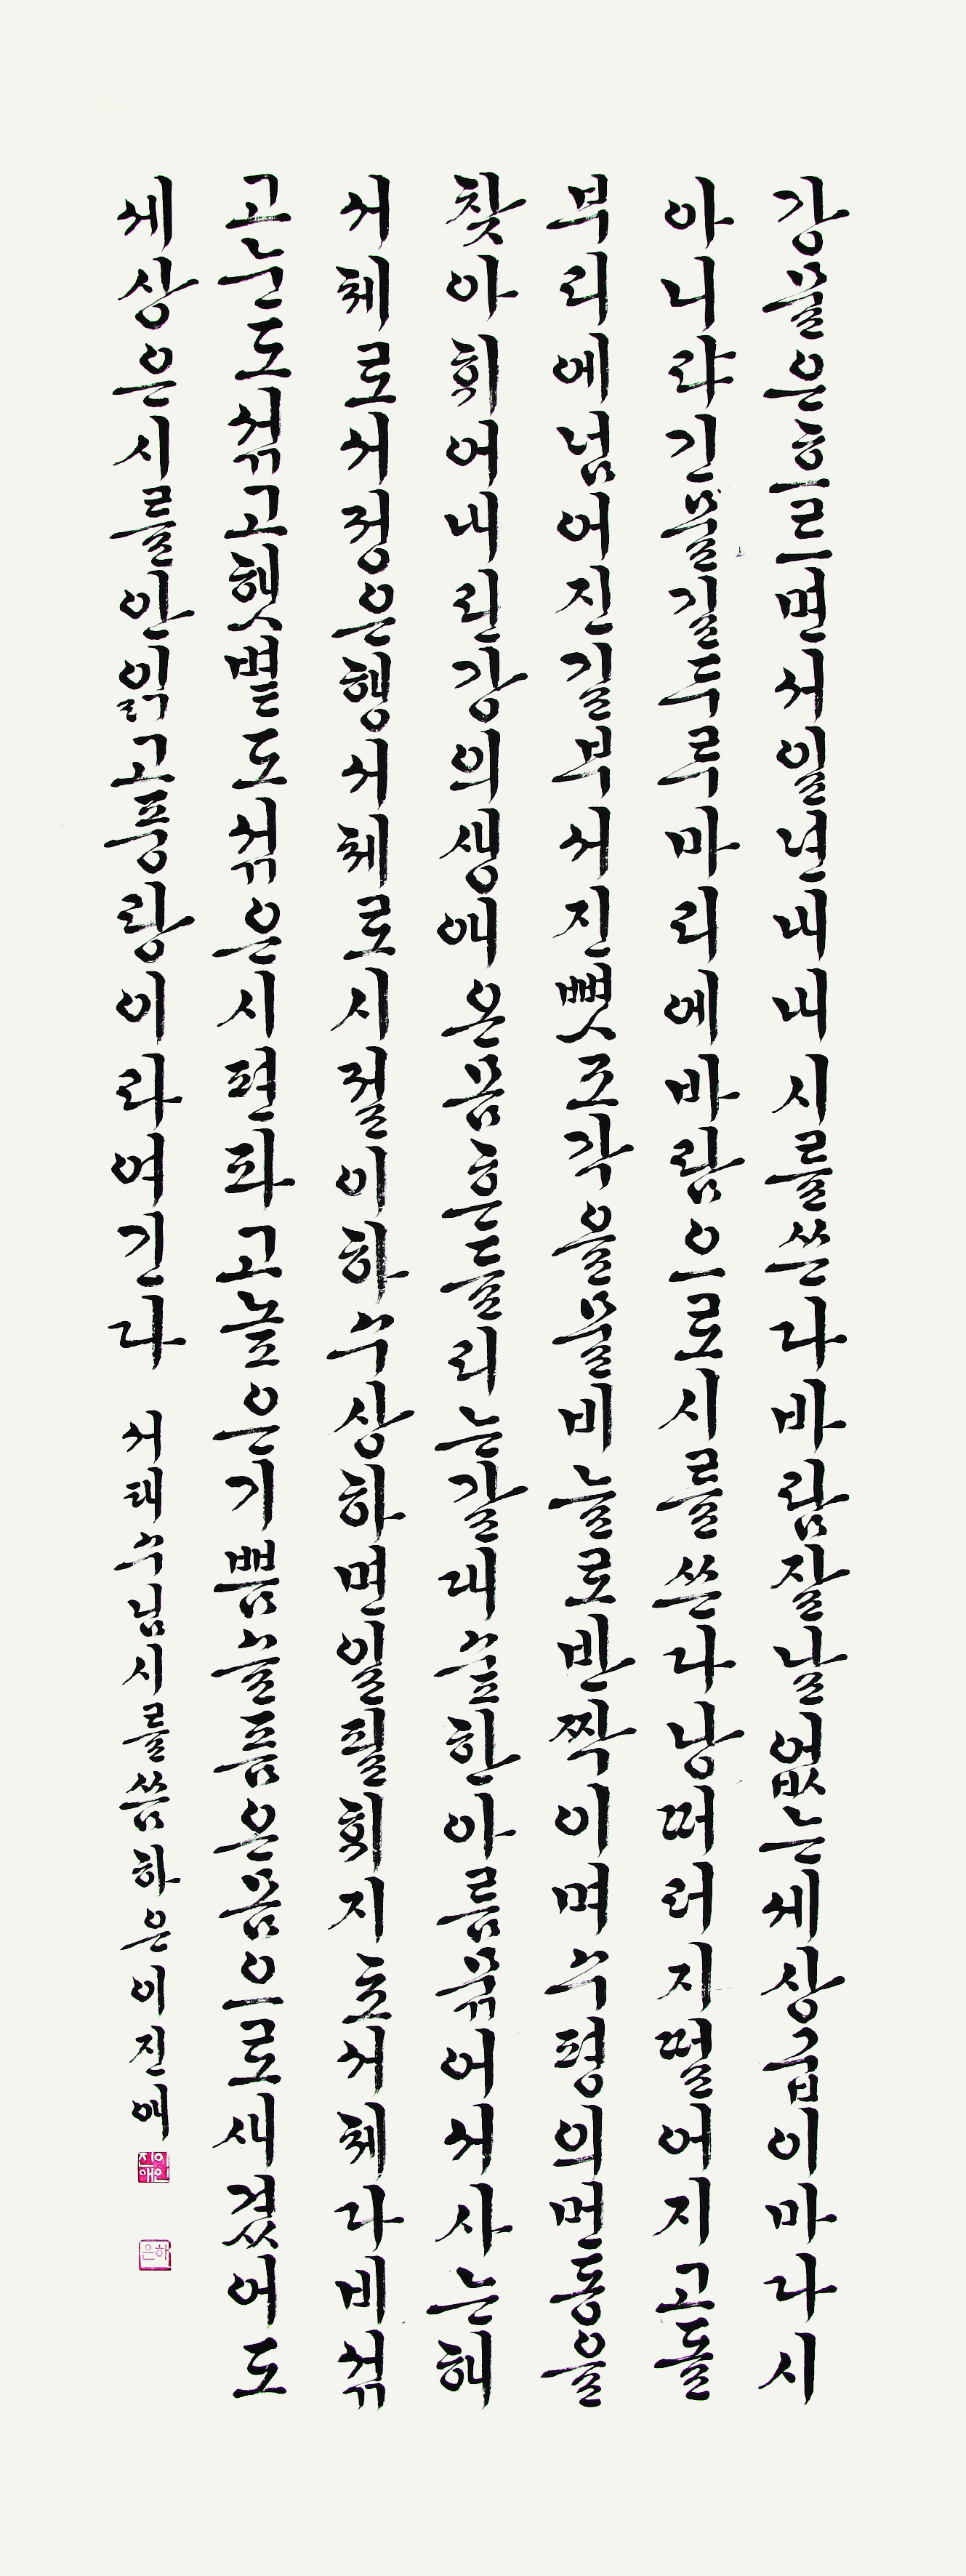 강물은흐르면서일년내내시를쓴다바람잘날없는세상굽이마다시
아니랴긴물길두루마리에바람으로시를쓴다낭떠러지떨어지고돌
부리에넘어진길부서진뼛조각을물비늘로반짝이며수평의먼동을
찾아휘어내린강의생애온몸흔들리는갈대숲한아름묶어서사는해
서체로서정은행서체로시절이하수상하면일필휘지초서체다비섞
고눈도섞고햇볕도섞은시편파고높은기쁨슬픔은몸으로새겼어도
세상은시를안읽고풍랑이라여긴다 서태수님시를씀하은이진애
이진애인
하은